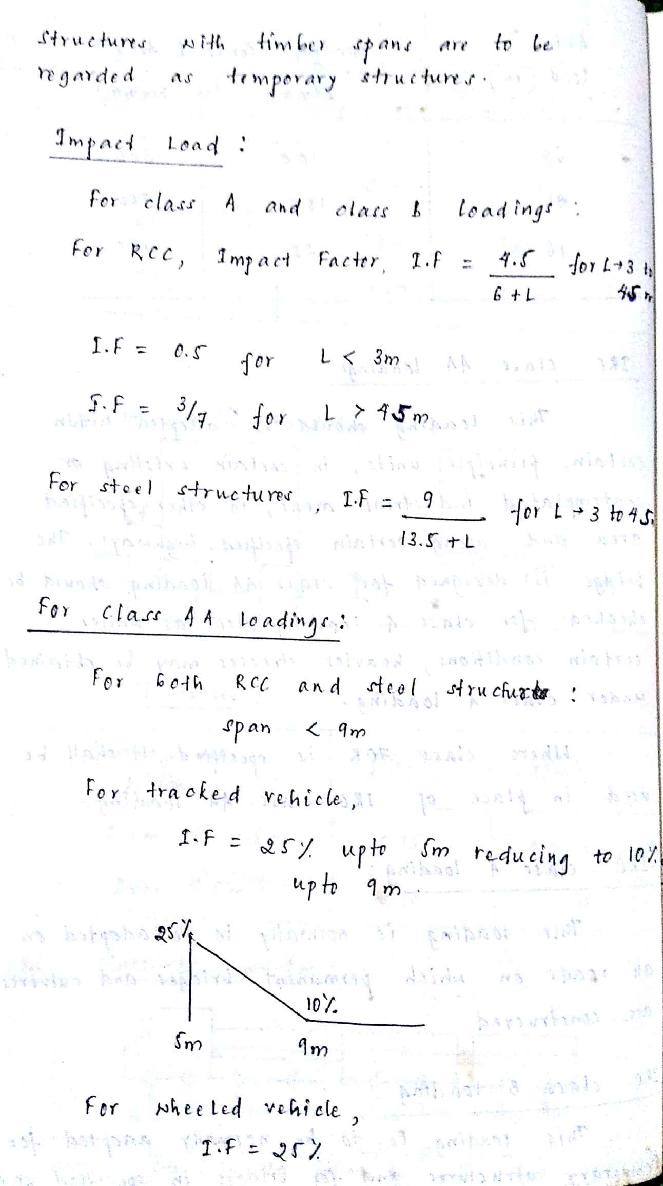 structures with timber spans are to be
regarded as temporary structures.
Impact Load :
For class A and class B loadings :
For RCC, Impact Factor, I.F = 4.5 / 6 + L for L → 3 to 45 m
I.F = 0.5 for L < 3m
I.F = 3/7 for L > 45m
For steel structures, I.F = 9 / 13.5 + L for L → 3 to 45
For Class AA Loadings :
For both RCC and steel structures :
span < 9m
For tracked vehicle,
I.F = 25% upto 5m reducing to 10%
upto 9m.
25%
10%
5m 9m
For wheeled vehicle,
I.F = 25%